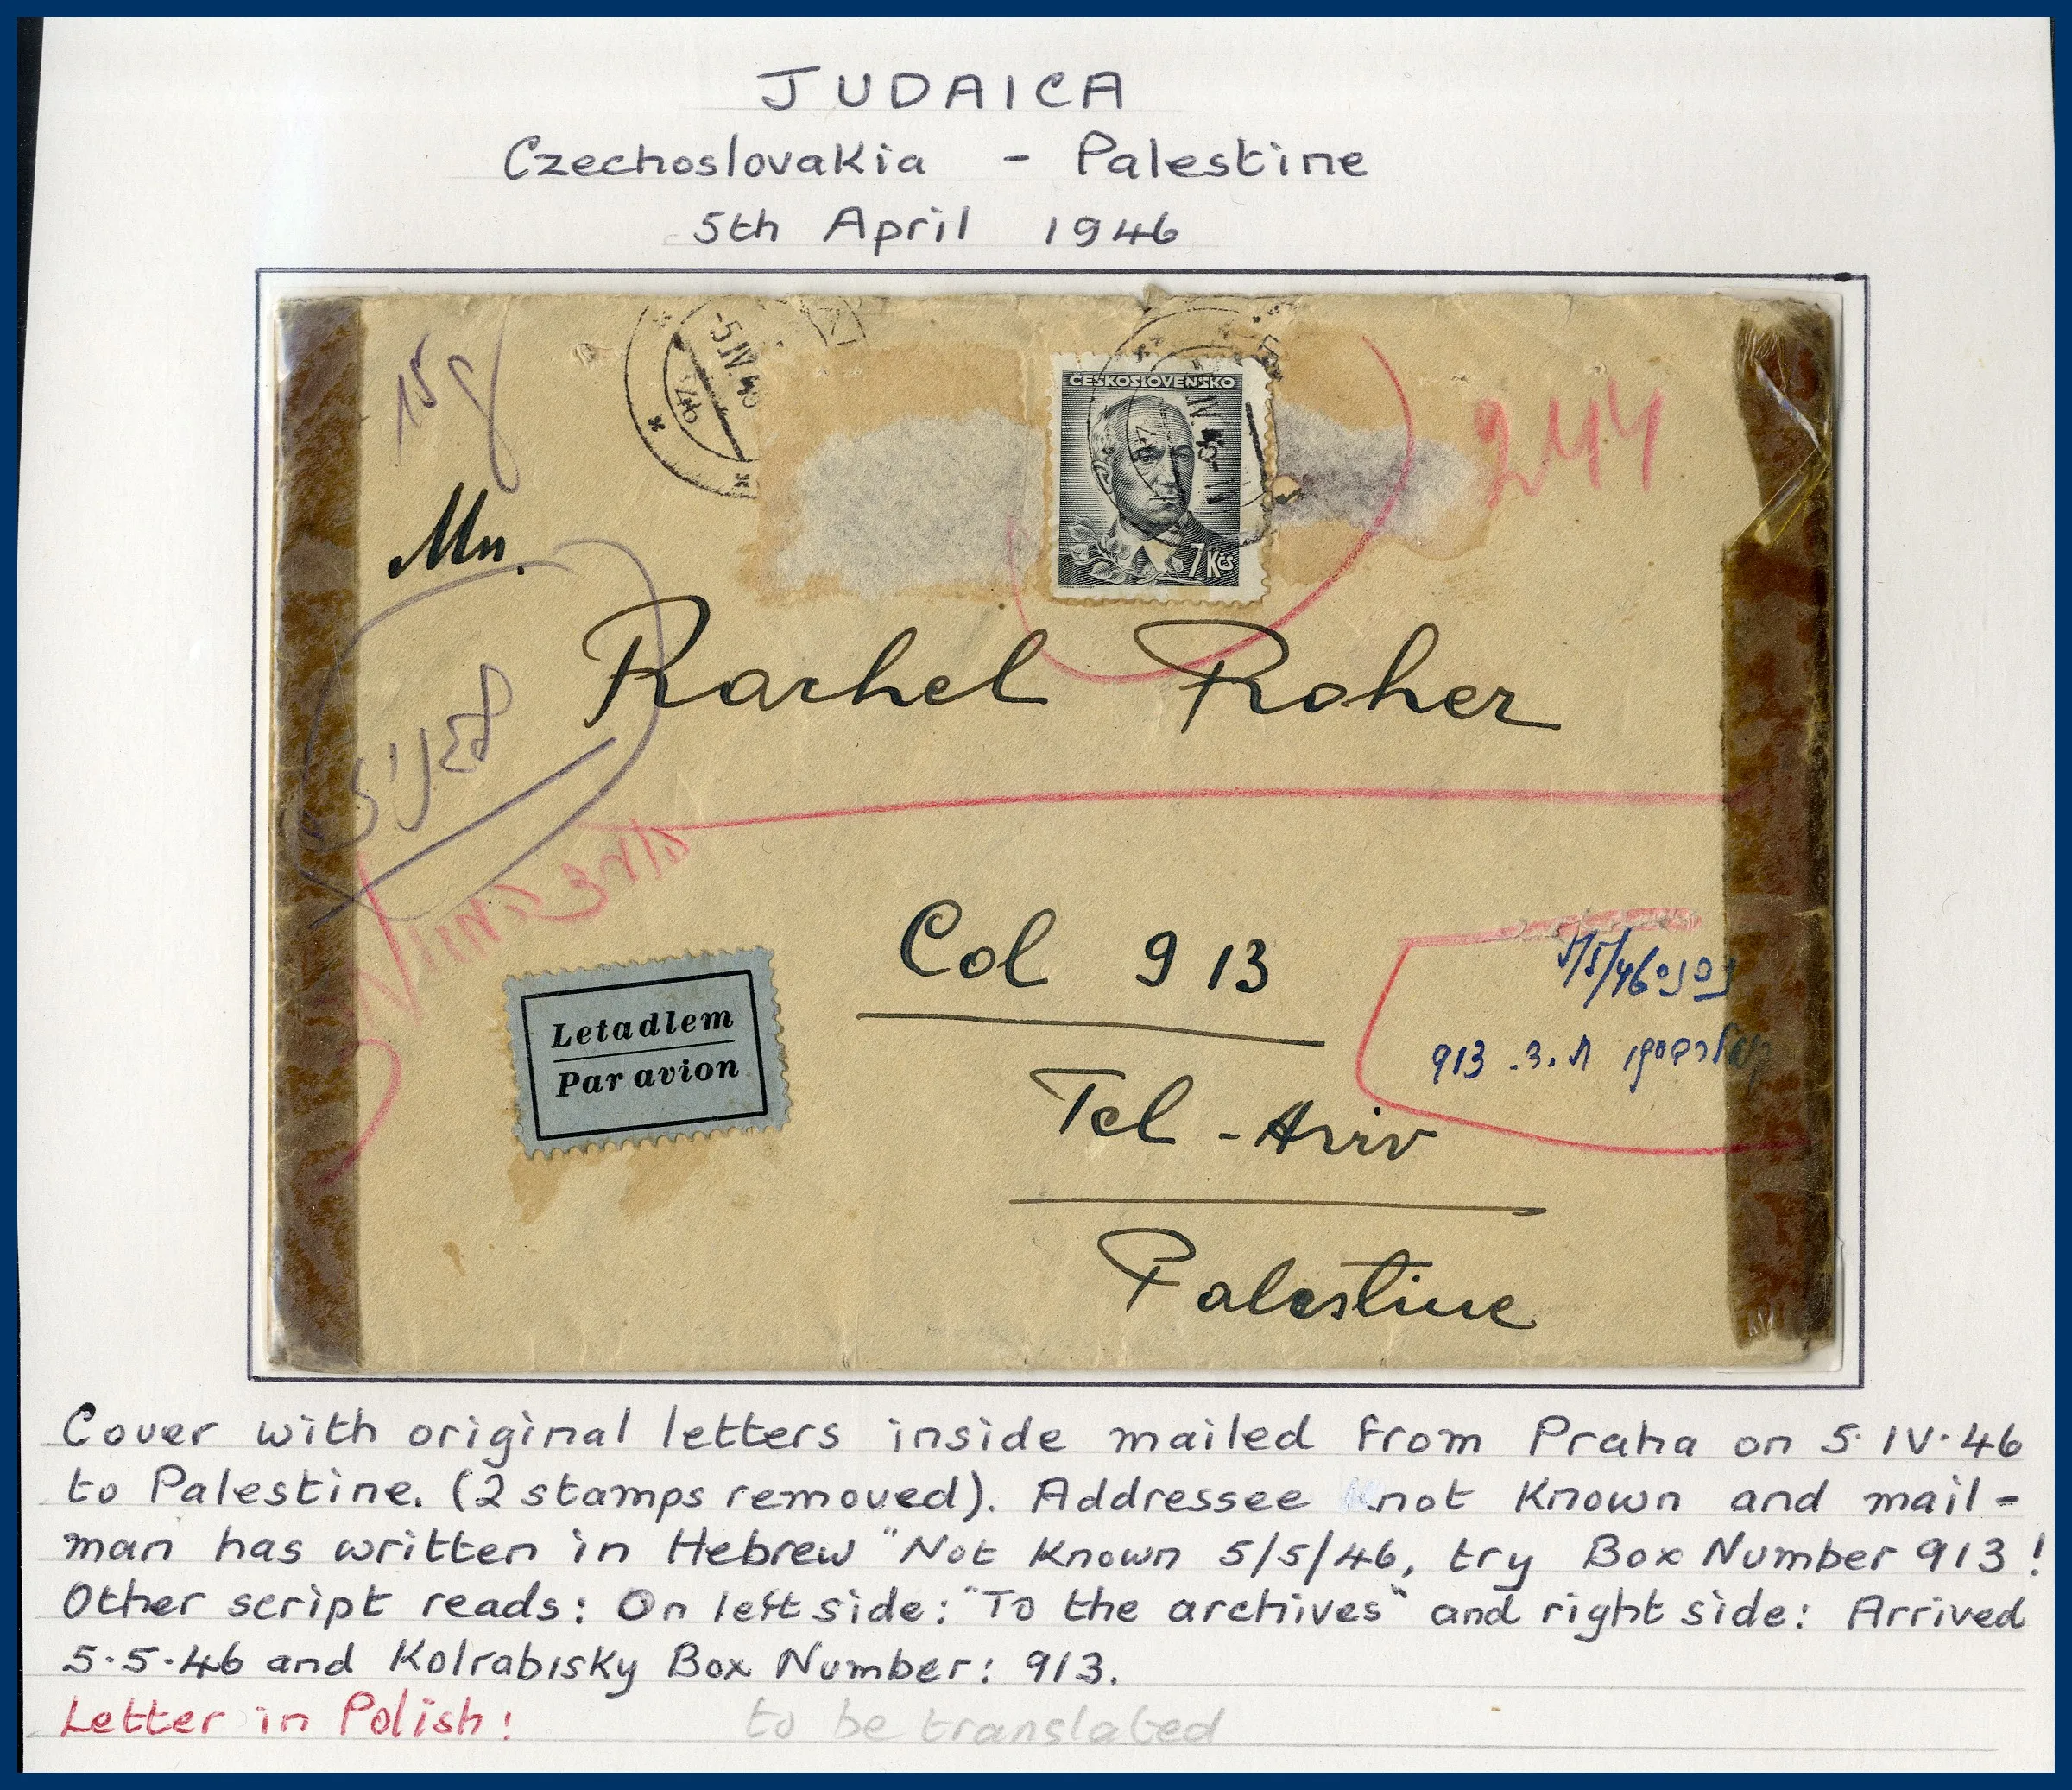 JUDAICA
Czechoslovakia - Palestine
5th April 1946
15g
-5.IV.46
ČESKOSLOVENSKO
7 Kčs
244
Mn.
Rachel Roher
Col 913
5/5/46
ת.ד. 913
Letadlem
Par avion
Tel-Aviv
Palestine
Cover with original letters inside mailed from Praha on 5·IV·46
to Palestine. (2 stamps removed). Addressee not known and mail-
man has written in Hebrew "Not known 5/5/46, try Box Number 913!
Other script reads: On left side: "To the archives" and right side: Arrived
5·5·46 and Kolrabisky Box Number: 913.
Letter in Polish! to be translated